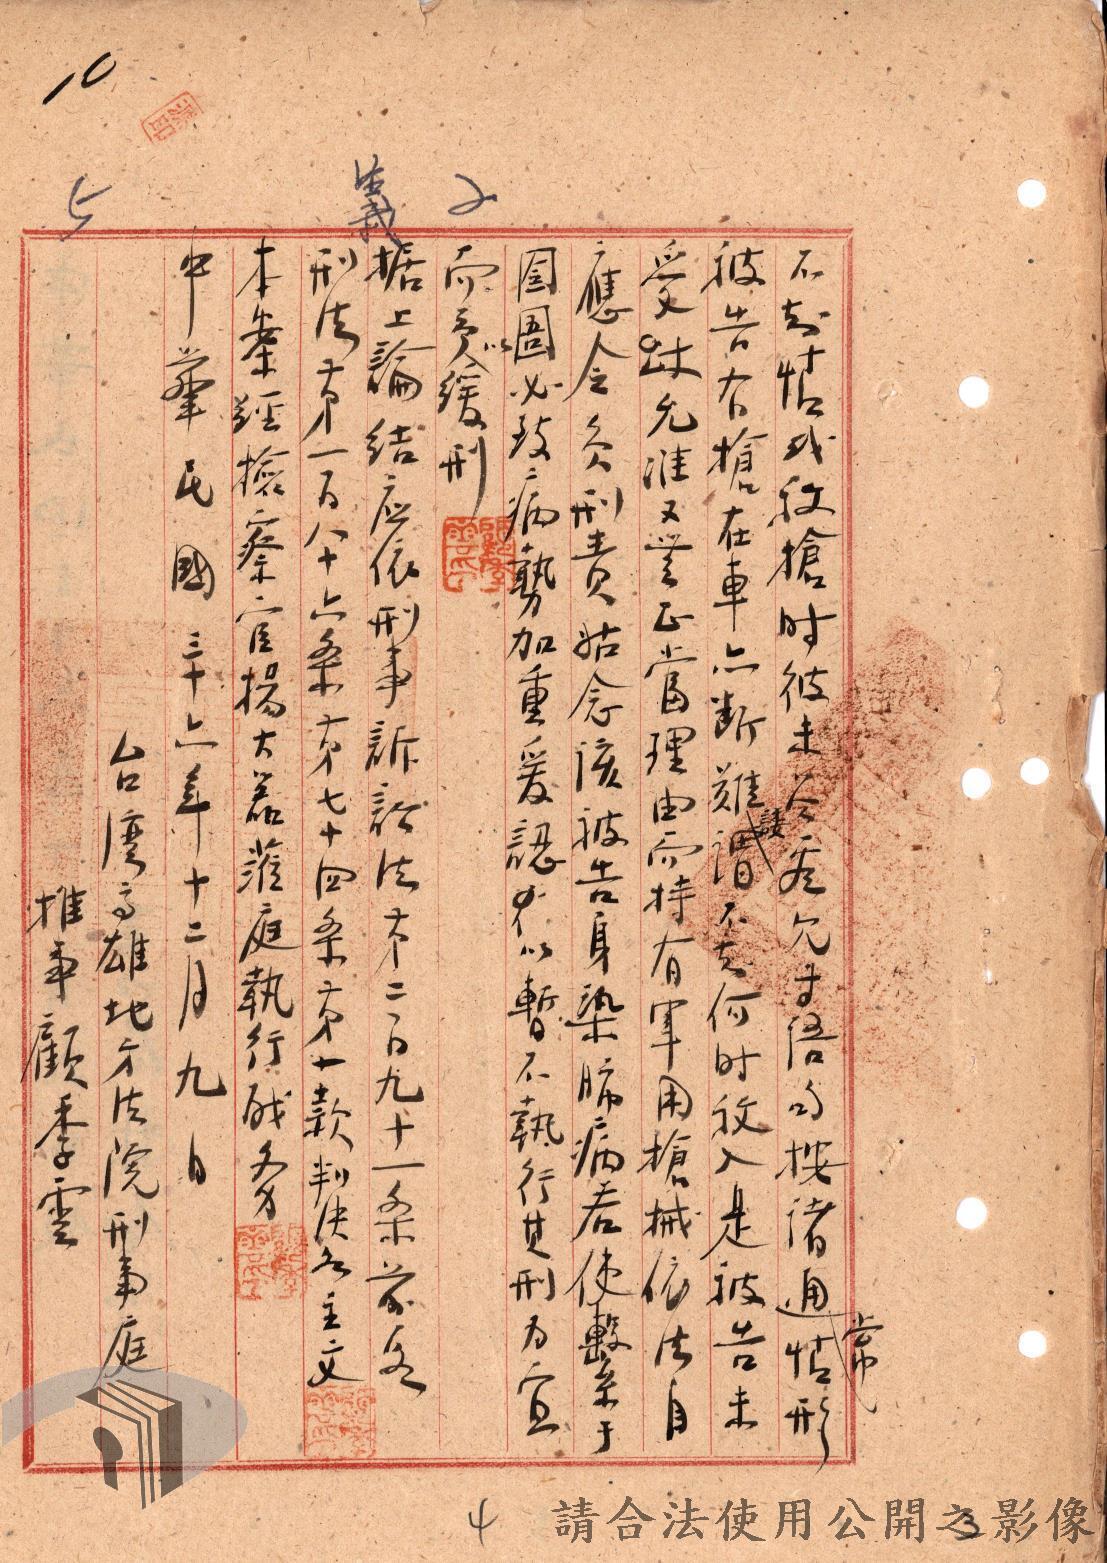 10
不知情或放槍时彼未答應允才語的按諸通常情形
被告有槍在車亦断難諉謂不知何时放入是被告未
受 允准又無正當理由而持有軍用槍械依法自
應令負刑責姑念該被告身染肺病若使繫于
囹圄必致病勢加重爰認為以暫不執行其刑为宜
而予以緩刑
據上論結应依刑事訴訟法第二百九十一条前段
刑法第一百八十六条第七十四条第一款判决如主文
本案經檢察官揚大器蒞庭執行職务
中華民國三十六年十二月九日
台灣高雄地方法院刑事庭
推事顧季雲
4
3
請合法使用公開之影像